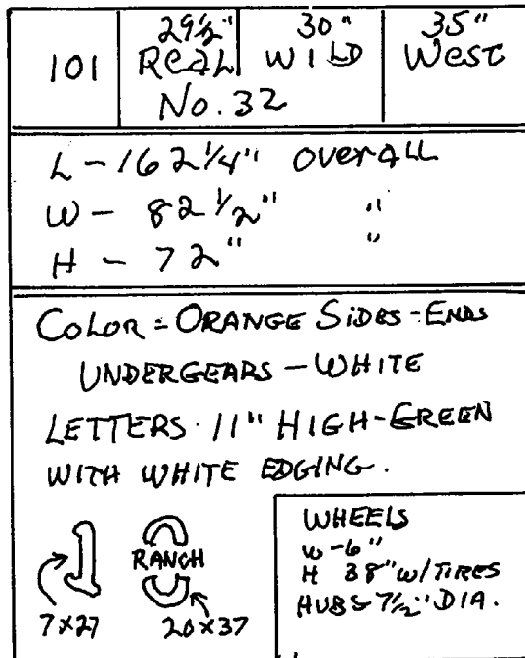 29½" 30" 35"
101 REAL WILD West
No. 32
L - 162 1/4" OVERALL
W - 82 1/2" "
H - 72" "
COLOR = ORANGE SIDES - ENDS
UNDERGEARS - WHITE
LETTERS 11" HIGH - GREEN
WITH WHITE EDGING.
RANCH
7x27 20x37
WHEELS
W - 6"
H 38" W/TIRES
HUBS 7½" DIA.